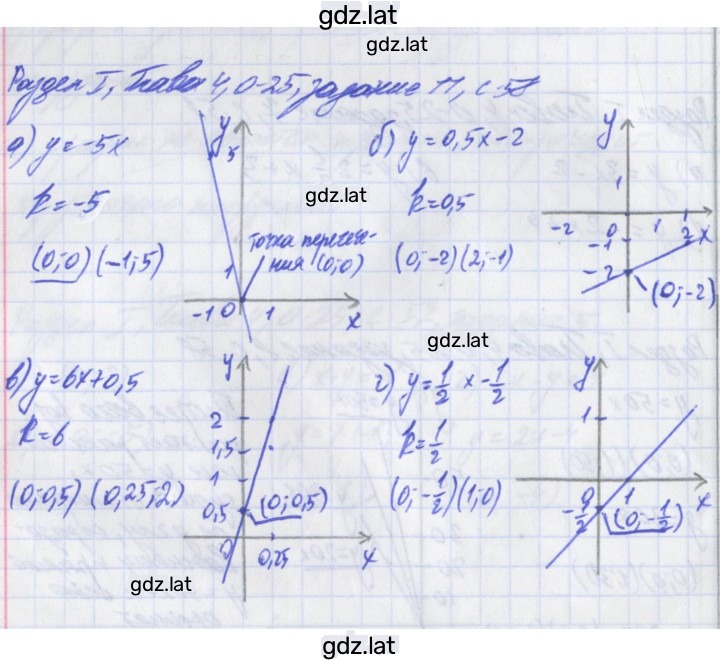 gdz.lat
gdz.lat
Раздел I, Глава 4, 0-25, задание 11, с 58
а) y = -5x
k = -5
(0;0) (-1;5)
y
5
gdz.lat
точка пересече-
ния (0;0)
1
-1 0 1
x
б) y = 0,5x - 2
k = 0,5
(0;-2) (2;-1)
y
1
-2 0 1 2 x
-1
-2
(0;-2)
gdz.lat
в) y = 6x + 0,5
k = 6
(0;0,5) (0,25;2)
y
2
1,5
1
0,5
(0;0,5)
0 0,25 x
г) y = 1/2 x - 1/2
k = 1/2
(0;-1/2) (1;0)
y
1
0 1
-1/2
(0;-1/2)
gdz.lat
gdz.lat